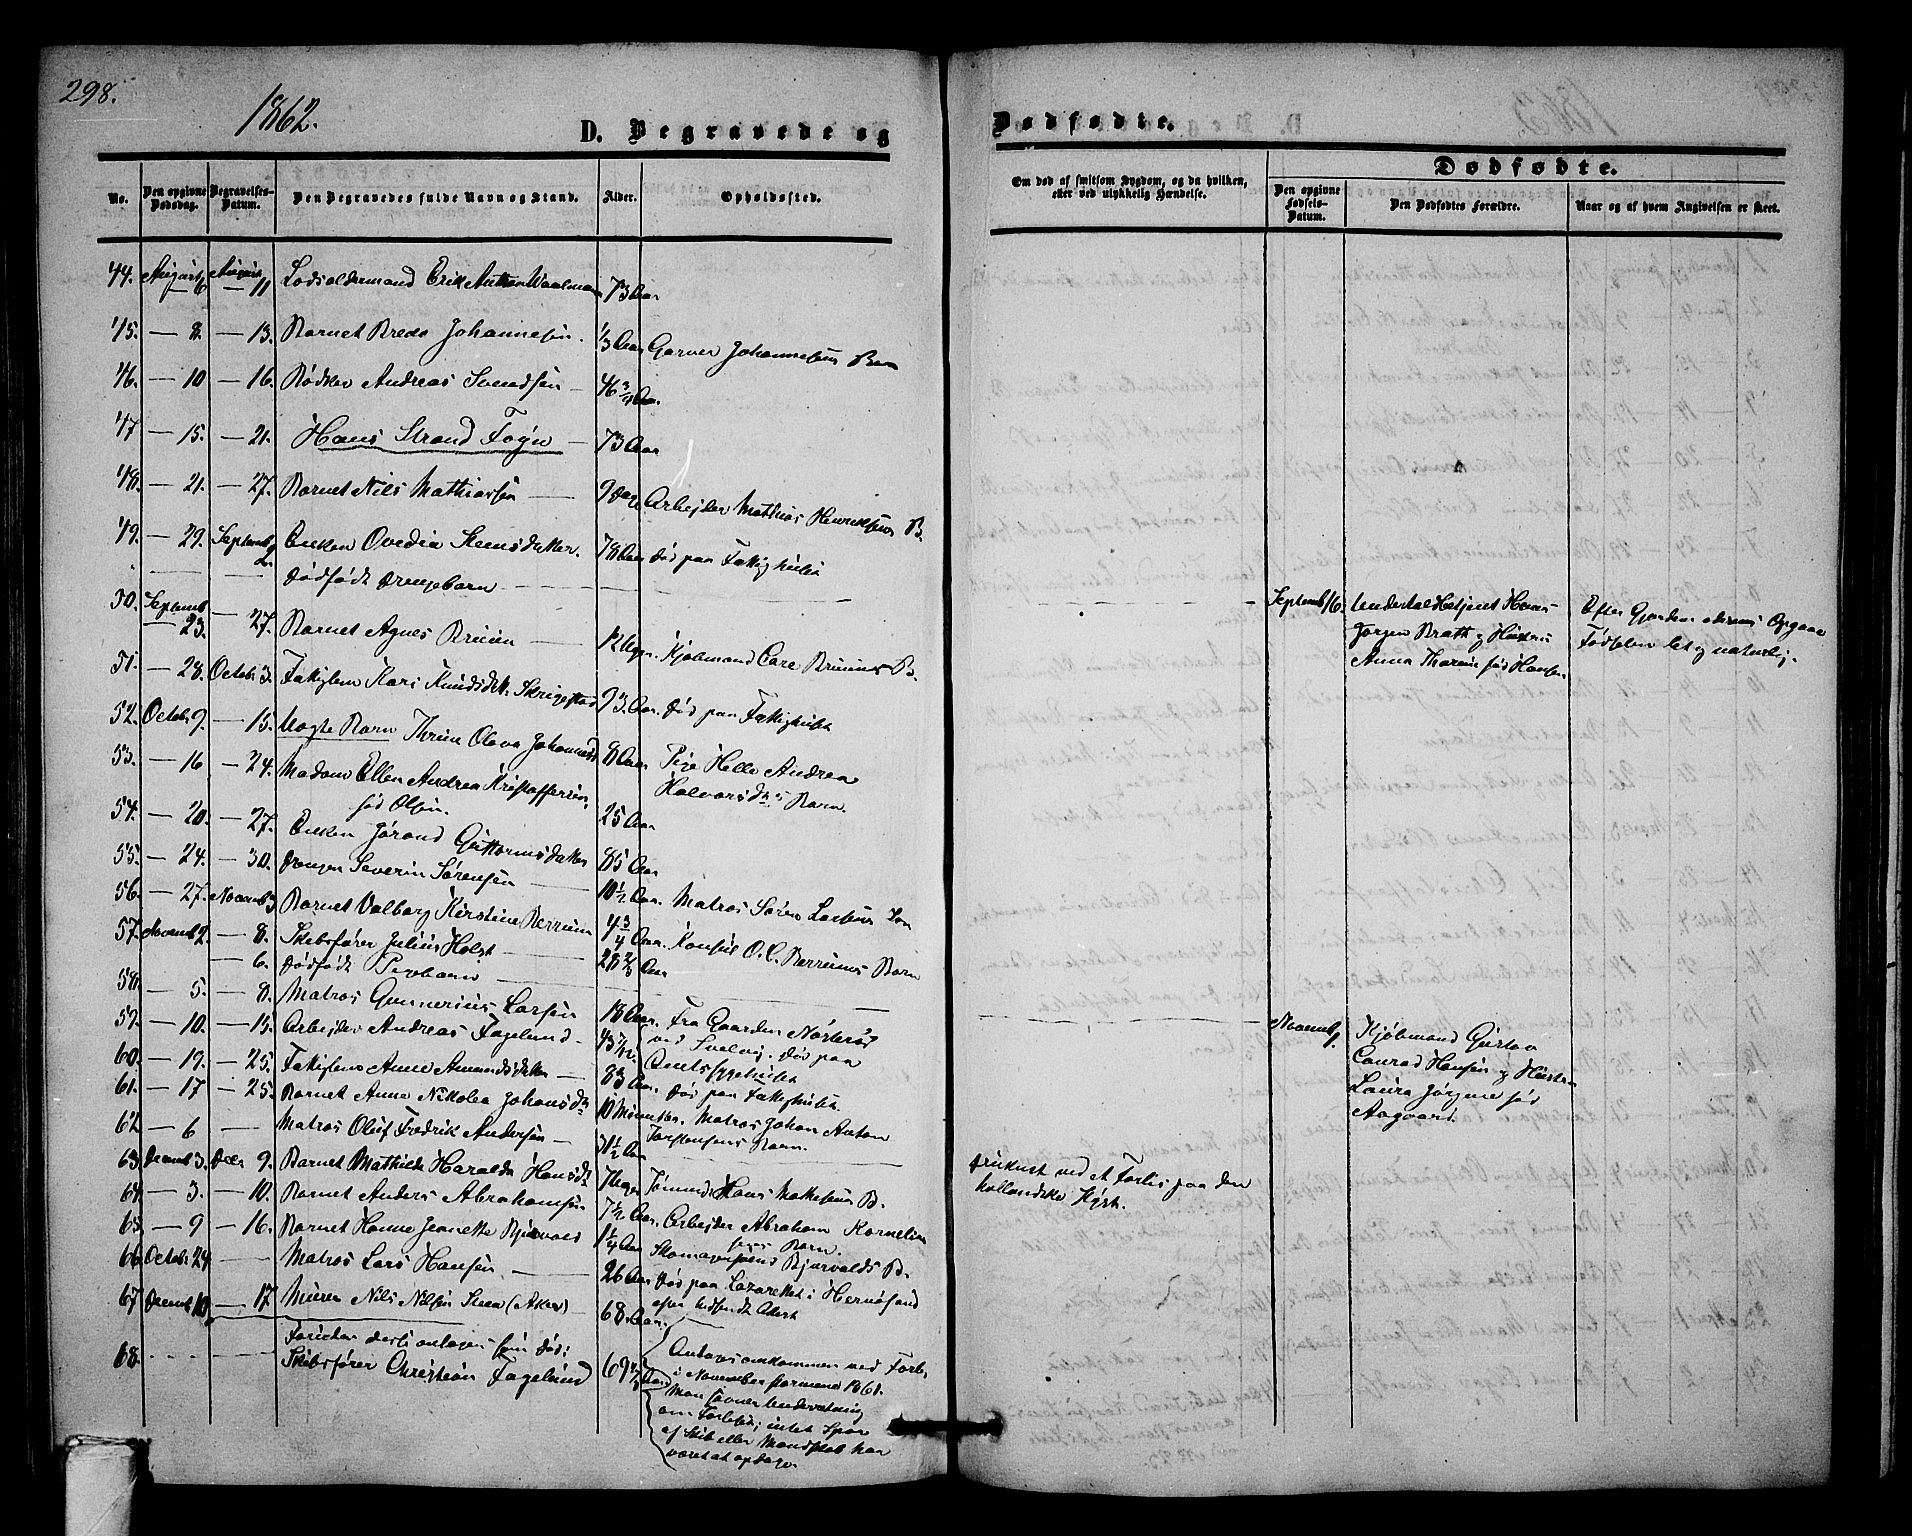 298.
1862.
D. Begravede og
No.
Den opgivne Dødsdag.
Begravelses-Datum.
Den Begravedes fulde Navn og Stand.
Alder.
Opholdssted.
44. August 6 August 11 Lodsoldermand Erik Anthon Waalmann 73 Aar
45. — 8. — 13. Barnet Bredo Johannesen. 1/3 Aar Garver Johannesens Barn
46. — 10 — 16. Bødker Andreas Svendsen — 46 3/4 Aar
47 — 15. — 21. Hans Strand Fogn — 73 Aar
48. — 21. — 27. Barnet Nils Mathiassen — 9 Dage Arbejder Mathias Henriksens B.
49. — 29. Septemb 2. Enken Ovedia Steensdatter. 78 Aar Død paa Fattighuset
— — Dødfødt Drengebarn —
50. Septemb 23. — 27. Barnet Agnes Bruun — 12 Uger. Kjøbmand Carl Bruuns B.
51. — 28. Octob. 3. Fattiglem Kari Knudsdtr. 93. Aar. Død paa Fattighuset
52. Octob. 9. — 15. Uægte Barn Thrine Olava Johannesd 8 Aar Pige Helle Andrea
Halvorsdns Barn.
53. — 16 — 24. Madam Ellen Andrea Kristoffersen,
fød Olsen. 25 Aar
54. — 20. — 27. Enken Jørand Guttormsdatter 85 Aar
55. — 24. — 30. Drengen Severin Sørensen — 10 1/2 Aar. Matros Søren Larsens Søn
56. — 27. Novemb 3 Barnet Valborg Kirstine Berrum 4 3/4 Aar. Konsul O. C. Berrums Barn
57. Novemb 2. — 8. Skibsfører Julius Holst — 28 Aar
— 6. Dødfødt Pigebarn —
58. — 5. — 8. Matros Gunnerius Larsen 18 Aar. Fra Gaarden
ved Svelvig. Død paa
59. — 10. — 15. Arbejder Andreas Fagelund. 43 7/12 Amtssygehuset
60. — 19. — 25. Fattiglem Anne Amundsdatter — 83 Aar. Død paa Fattighuset.
61. — 17 — 25. Barnet Anne Nikolea Johansdn 10 Minutter. Matros Johan Anton
Torstensens Barn.
62 — 6 — Matros Oluf Fredrik Andersen — 31 1/2 Aar
63. Decemb 3. Decr 9. Barnet Mathilde Haralda Hansdt 7 Uger Tømmerm Hans B.
64. — 3. — 10. Barnet Anders Abrahamsen 7 1/2 Aar. Arbejder Abraham Kornelius
sens Barn.
65. — 9 — 16. Barnet Hanne Jeanette Bjurvald 1 1/4 Aar Skomagersvend Bjurvalds B.
66 Octob 24 — Matros Lars Hansen — 26 Aar Død paa Lazarettet i Hernøsand
efter
67 Decemb 10 — 17 Murer Nils Nilsen (Aker) — 68. Aar.
Foruden disse antages som død:
68. Skibsfører Christian Fagelund 69 1/2 Aar Antages omkommen ved Forlis
i November forrige 1861.
Man savner Underretning
om Forliset; intet Spor
af Skib eller Mandskab har
været at opdage.
Dødfødte.
Om død af smitsom Sygdom, og da hvilken,
eller ved ulykkelig Hændelse.
Dødfødte.
Den opgivne Fødsels-Datum.
Den Dødfødtes Forældre.
Naar og af hvem Angivelsen er skeet.
Septemb 16. Underkaltetjent Hans
Jørgen Brath og Hustru
Anna Thorine fød Hansen.
Efter Gjordemoderens Opgave
Fødselen let og naturlig.
Novemb 1. Kjøbmand Gustav
Conrad Hansen og Hustru
Laura Jørgine fød
Aagaard.
Druknet ved et Forlis paa den
hollandske Kyst.